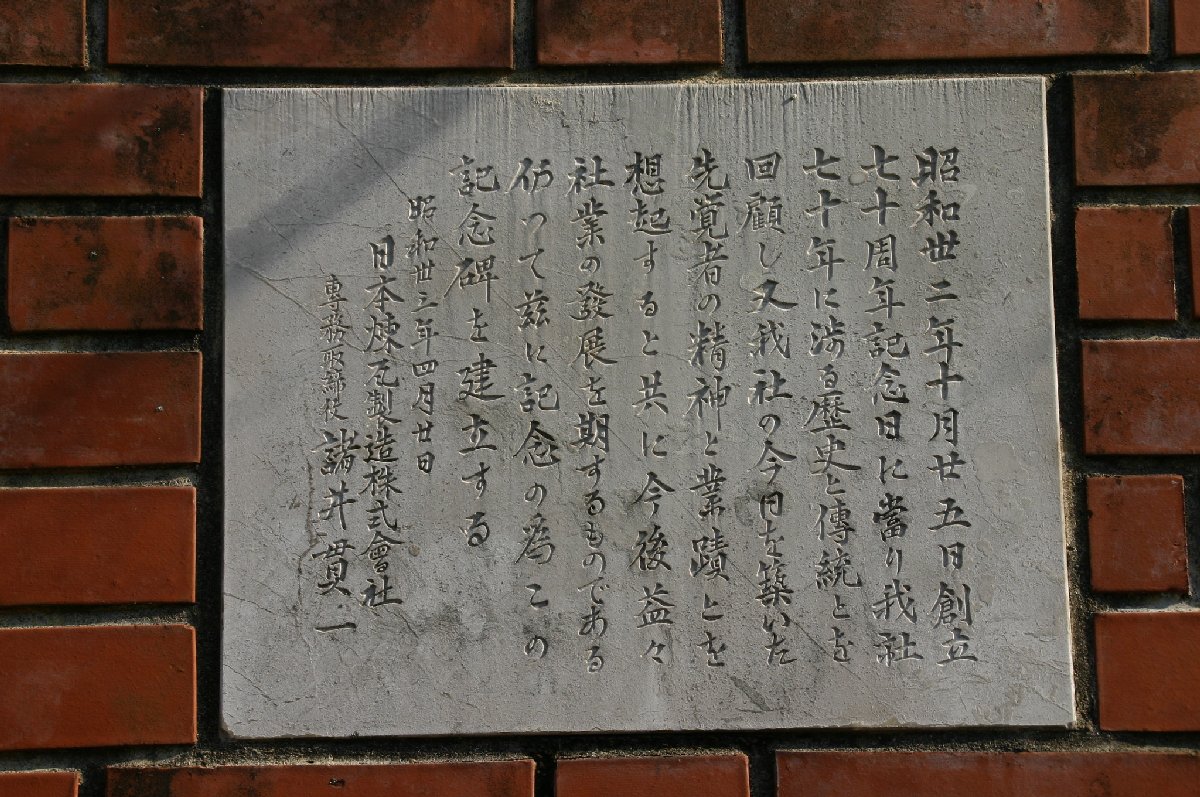 昭和丗二年十月廿五日創立
七十周年記念日に當り我社
七十年に渉る歴史と傳統とを
回顧し又我社の今日を築いた
先覚者の精神と業蹟とを
想起すると共に今後益々
社業の發展を期するものである
仍つて茲に記念の為この
記念碑を建立する
昭和丗三年四月廿日
日本煉瓦製造株式會社
專務取締役 諸井貫一